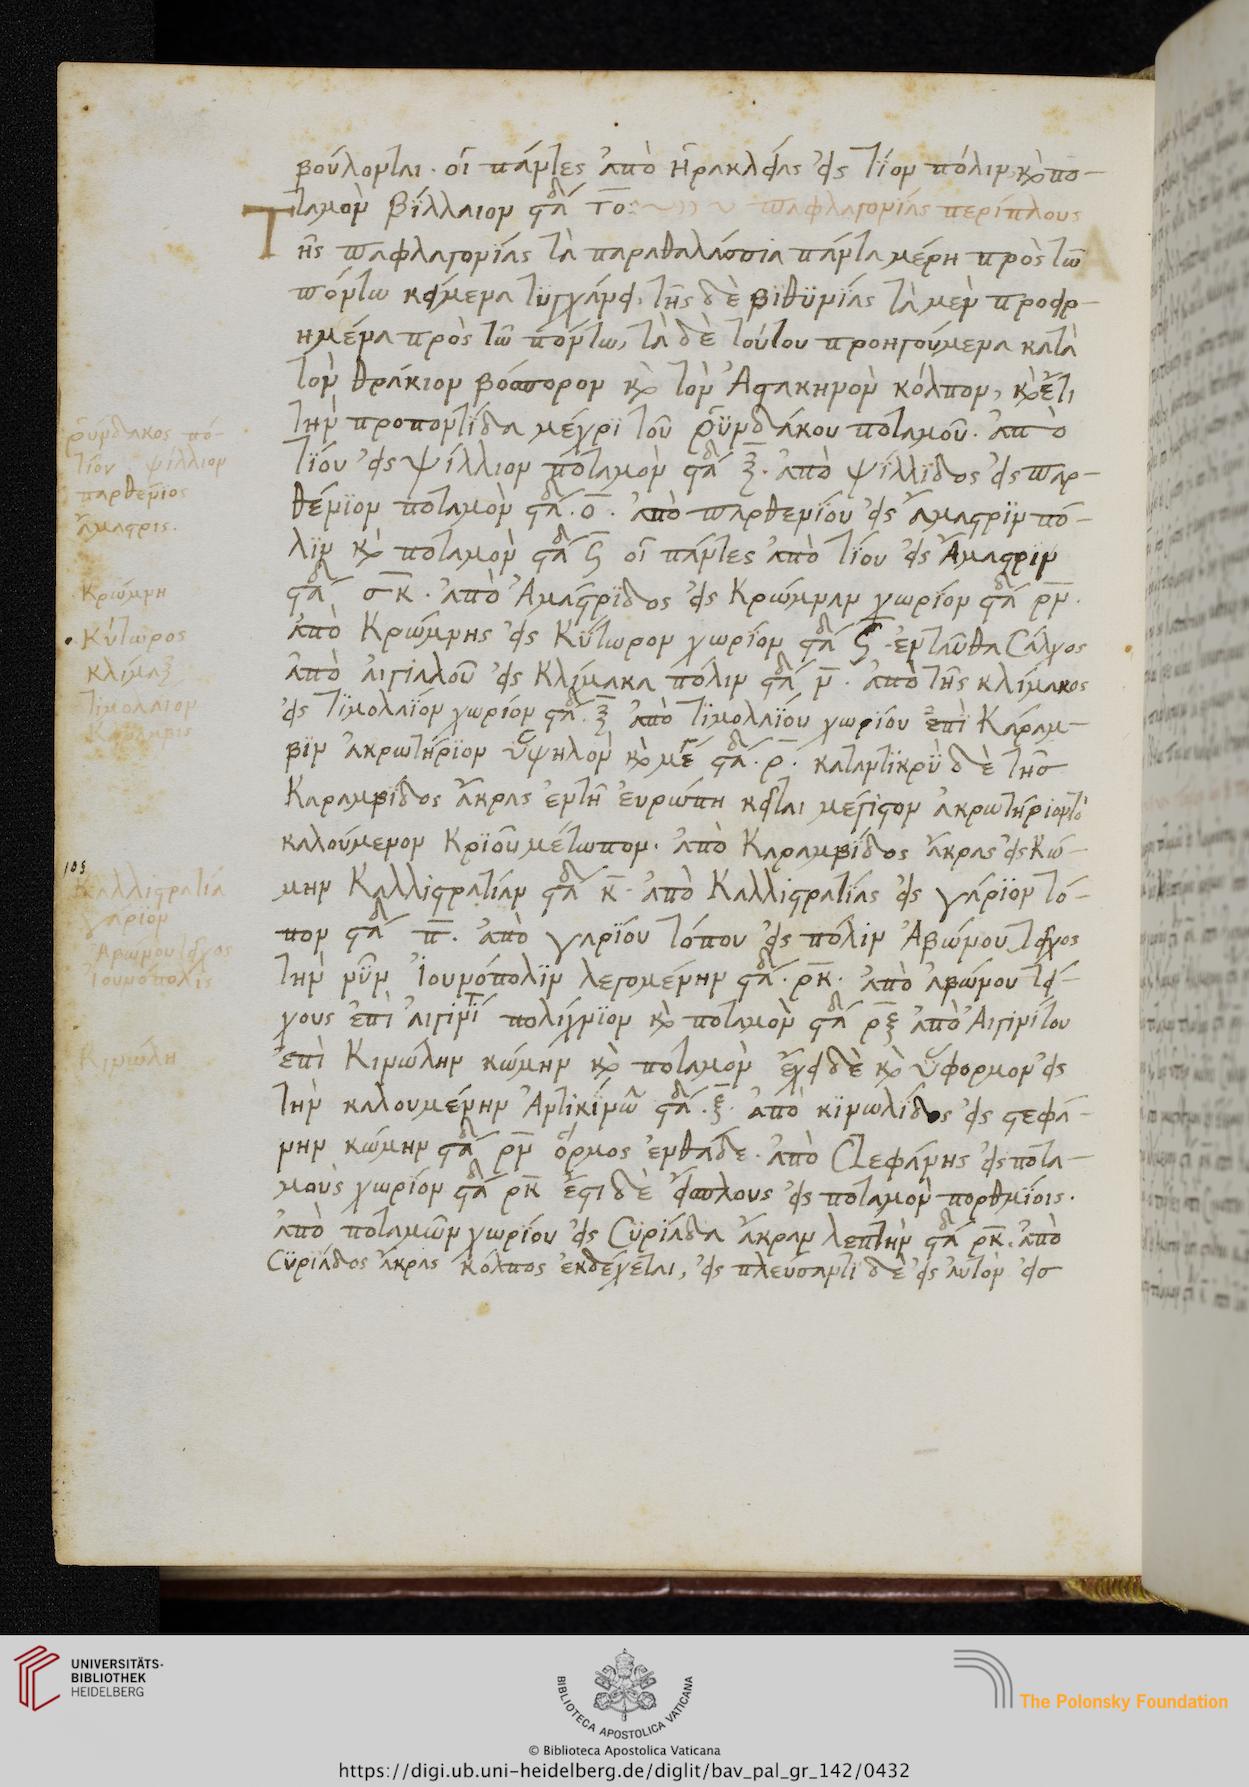 βούλονται. οἱ πάντες ἀπὸ ἡρακλείας εἰς τίον πόλιν, κὶ πο-
ταμὸν βίλλαιον στά το: παφλαγονίας περίπλους
Τῆς παφλαγονίας τὰ παραθαλάσσια πάντα μέρη πρὸς τῶ
πόντω κείμενα τϋγχάνει, τῆς δὲ βϊθϋνίας τὰ μὲν προειρ-
ημένα πρὸς τῶ πόντω, τὰ δὲ τούτου προηγούμενα κατὰ
τὸν θράκιον βόσπορον κὶ τὸν Ἀστακηνὸν κόλπον, κὶ ἔτι
τὴν προποντίδα μέχρϊ τοῦ ῥϋνδάκου ποταμοῦ. ἀπὸ
τΐου εἰς ψίλλιον ποταμὸν στά ξ. ἀπὸ ψίλλϊδος εἰς παρ-
θένϊον ποταμὸν στά. ο. ἀπὸ παρθενίου εἰς ἄμαστριν πό-
λϊν κὶ ποταμὸν στά ϛ οἱ πάντες ἀπὸ τίου εἰς Ἄμαστριν
στά σκ. ἀπὸ Ἀμάστρϊδος εἰς Κρώμναν χωρίον στά ρν.
ἀπὸ Κρώμνης εἰς Κΰτωρον χωρίον στά ϛ. ἐνταῦθα Σάλχος
ἀπὸ αἰγϊαλοῦ εἰς Κλίμακα πόλιν στά ν. ἀπὸ τῆς κλίμακος
εἰς Τϊμολαϊον χωρίον στά. ξ ἀπὸ Τϊμολαΐου χωρίου ἐπὶ Κάραμ-
βϊν ἀκρωτήρϊον ὑψηλὸν κὶ μέγ στά. ρ. καταντϊκρϋ δὲ τῆσ
Καραμβίδος ἄκρας ἐν τῆ ἐυρώπη κεῖται μέγϊστον ἀκρωτήριον τὸ
καλούμενον Κρϊοῦ μέτωπον. ἀπὸ Καραμβίδος ἄκρας εἰς Κώ-
μην Καλλιστρατίαν στά κ. ἀπὸ Καλλιστρατίας εἰς γάρϊον τό-
πον στά π. ἀπὸ γαρΐου τόπου εἰς πόλϊν Ἀβώνου τεῖχος
τὴν νῦν Ἰουνόπολϊν λεγομένην στά. ρκ. ἀπὸ ἀβώνου τεί-
χους ἐπὶ ἀιγινΐτ πολίχνϊον κὶ ποταμὸν στά ρξ ἀπὸ Ἀιγινίτου
ἐπὶ Κινώλην κώμην κὶ ποταμὸν ἔχει δὲ κὶ ὕφορμον εἰς
τὴν καλουμένην Ἀντικίνω στά. ξ. ἀπὸ κϊνωλίδος εἰς στεφά-
νην κώμην στά ρν ὅρμος ἐνθάδε. ἀπὸ Στεφάνης εἰς ποτα-
μοὺς χωρίον στά ρκ ἔστι δὲ εἴσπλους εἰς ποταμὸν πορθμΐοις.
ἀπὸ ποταμῶν χωρίου εἰς Σϋρϊάδα ἄκραν λεπτὴν στά ρκ. ἀπὸ
Σϋρϊάδος ἄκρας κόλπος ἐκδέχεται, εἰς πλεύσαντϊ δὲ εἰς ἀυτὸν εἰσ
ῥύνδακος πό-
Τῖον ψίλλιον
παρθένϊος
ἄμαστρις.
Κρώμνη
Κύτωρος
κλίμαξ
Τιμολαιον
Κάραμβις
105
Καλλιστρατία
γάριον
Ἀβώνου τεῖχος
Ἰουνόπολις
Κινώλη
UNIVERSITÄTS-
BIBLIOTHEK
HEIDELBERG
BIBLIOTECA APOSTOLICA VATICANA
The Polonsky Foundation
© Biblioteca Apostolica Vaticana
https://digi.ub.uni-heidelberg.de/diglit/bav_pal_gr_142/0432